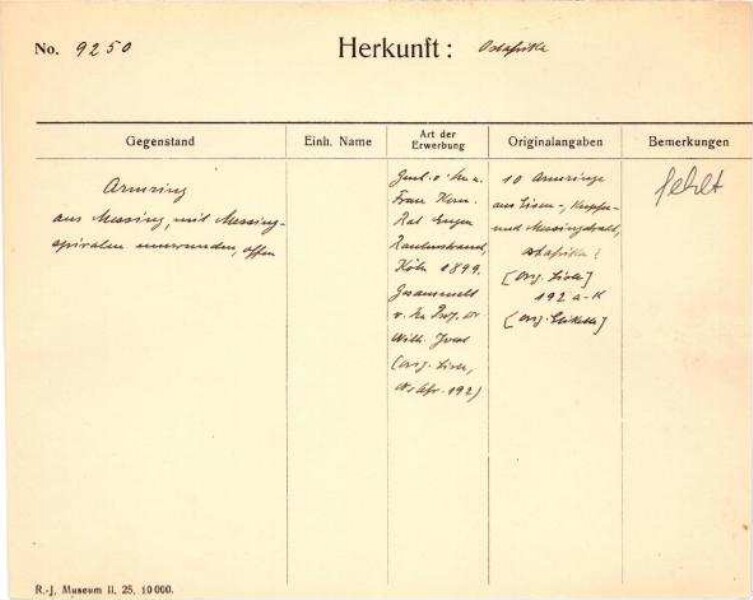 No. 9250
Herkunft: Ostafrika
Gegenstand
Einh. Name
Art der Erwerbung
Originalangaben
Bemerkungen
Armring
aus Messing, mit Messing-
spiralen umwunden, offen
Frau Kom.
Rat Eugen
Rautenstrauch,
Köln 1899.
Gesammelt
v. Hn Prof. Dr
Wilh. Joest
(orig. Liste,
192)
10 Armringe
aus Eisen-, Kupfer-
und Messingdraht,
Ostafrika
[orig. Liste]
192 a-k
[orig. Etikette]
fehlt
R.-J. Museum II. 25. 10000.